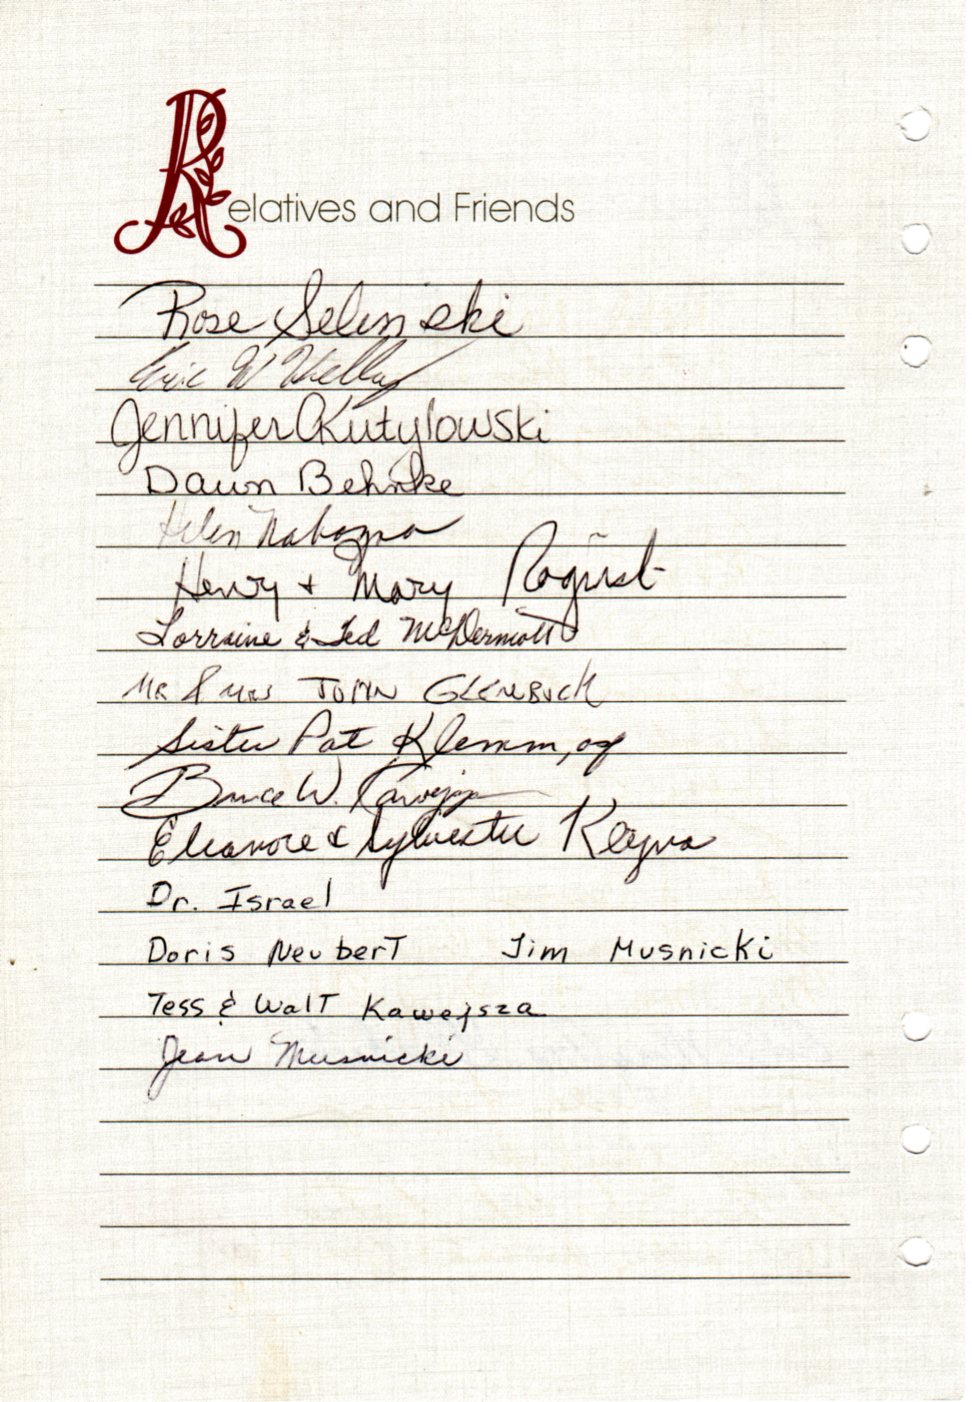 Relatives and Friends
Rose Selinski
Eric W
Jennifer Kutylowski
Dawn Behnke
Helen
Henry & Mary Rogust
Lorraine & Ted McDermott
MR & MRS JOHN GLENBUCK
Sister Pat Klemm, op
Bruce W.
Eleanore & Sylvester Klejna
Dr. Israel
Doris Neubert Jim Musnicki
Tess & Walt Kawejsza
Jean Musnicki